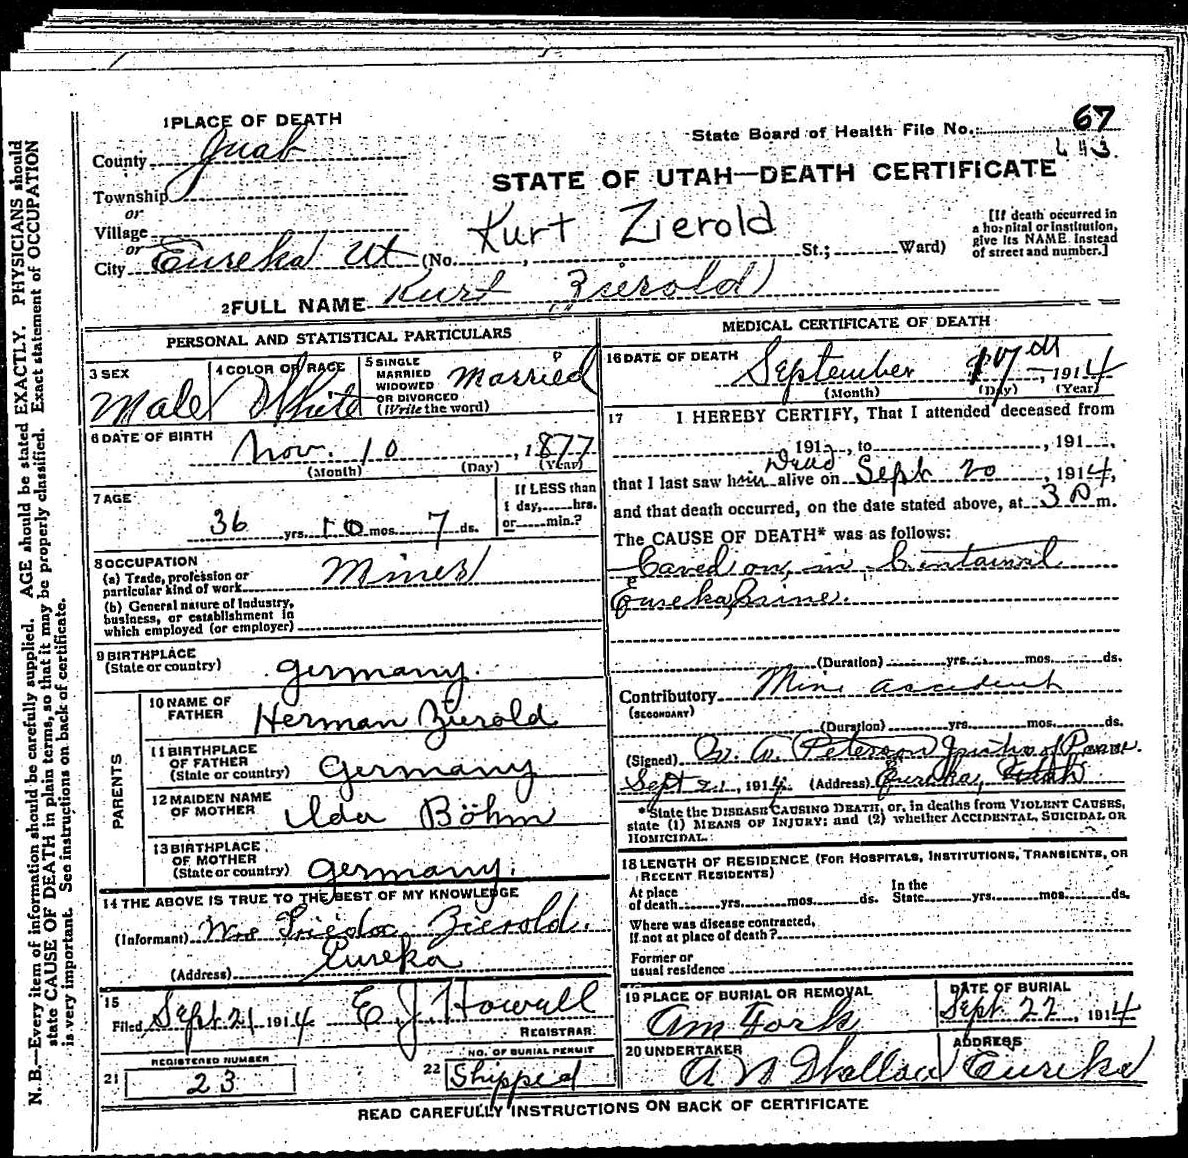 1 PLACE OF DEATH
County Juab
State Board of Health File No. 67
Township
STATE OF UTAH—DEATH CERTIFICATE
or
Village
or
City Eureka Ut (No. , St.; Ward)
Kurt Zierold
[If death occurred in a hospital or institution, give its NAME instead of street and number.]
2 FULL NAME Kurt Zierold
PERSONAL AND STATISTICAL PARTICULARS
3 SEX
Male
4 COLOR OR RACE
White
5 SINGLE MARRIED WIDOWED OR DIVORCED (Write the word)
Married
6 DATE OF BIRTH
Nov. 10, 1877
(Month) (Day) (Year)
7 AGE
36 yrs. 10 mos. 7 ds.
If LESS than 1 day, hrs. or min.?
8 OCCUPATION
(a) Trade, profession or particular kind of work Miner
(b) General nature of Industry, business, or establishment in which employed (or employer)
9 BIRTHPLACE
(State or country) Germany.
PARENTS
10 NAME OF FATHER Herman Zierold
11 BIRTHPLACE OF FATHER (State or country) Germany
12 MAIDEN NAME OF MOTHER Ida Böhm
13 BIRTHPLACE OF MOTHER (State or country) Germany.
14 THE ABOVE IS TRUE TO THE BEST OF MY KNOWLEDGE
(Informant) Mrs Frieda Zierold.
(Address) Eureka
15
Filed Sept 21 1914 E. J. Howell
REGISTRAR.
REGISTERED NUMBER
21 23
NO. OF BURIAL PERMIT
22 Shipped
MEDICAL CERTIFICATE OF DEATH
16 DATE OF DEATH
September 17th, 1914
(Month) (Day) (Year)
17 I HEREBY CERTIFY, That I attended deceased from
, 191 , to , 191 ,
Dead
that I last saw him alive on Sept 20, 1914,
and that death occurred, on the date stated above, at 3 P m.
The CAUSE OF DEATH* was as follows:
Caved on, in Centennial
Eureka mine.
(Duration) yrs. mos. ds.
Contributory Mine accident
(SECONDARY)
(Duration) yrs. mos. ds.
(Signed) Peterson
Sept 21, 1914. (Address) Eureka, Utah
*State the DISEASE CAUSING DEATH, or, in deaths from VIOLENT CAUSES,
state (1) MEANS OF INJURY; and (2) whether ACCIDENTAL, SUICIDAL OR
HOMICIDAL.
18 LENGTH OF RESIDENCE (FOR HOSPITALS, INSTITUTIONS, TRANSIENTS, OR
RECENT RESIDENTS)
At place of death yrs. mos. ds. In the State yrs. mos. ds.
Where was disease contracted,
If not at place of death?
Former or
usual residence
19 PLACE OF BURIAL OR REMOVAL
Am Fork
DATE OF BURIAL
Sept. 22, 1914
20 UNDERTAKER
ADDRESS
Eureka
READ CAREFULLY INSTRUCTIONS ON BACK OF CERTIFICATE
N. B.—Every item of information should be carefully supplied. AGE should be stated EXACTLY. PHYSICIANS should
state CAUSE OF DEATH in plain terms, so that it may be properly classified. Exact statement of OCCUPATION
is very important. See instructions on back of certificate.